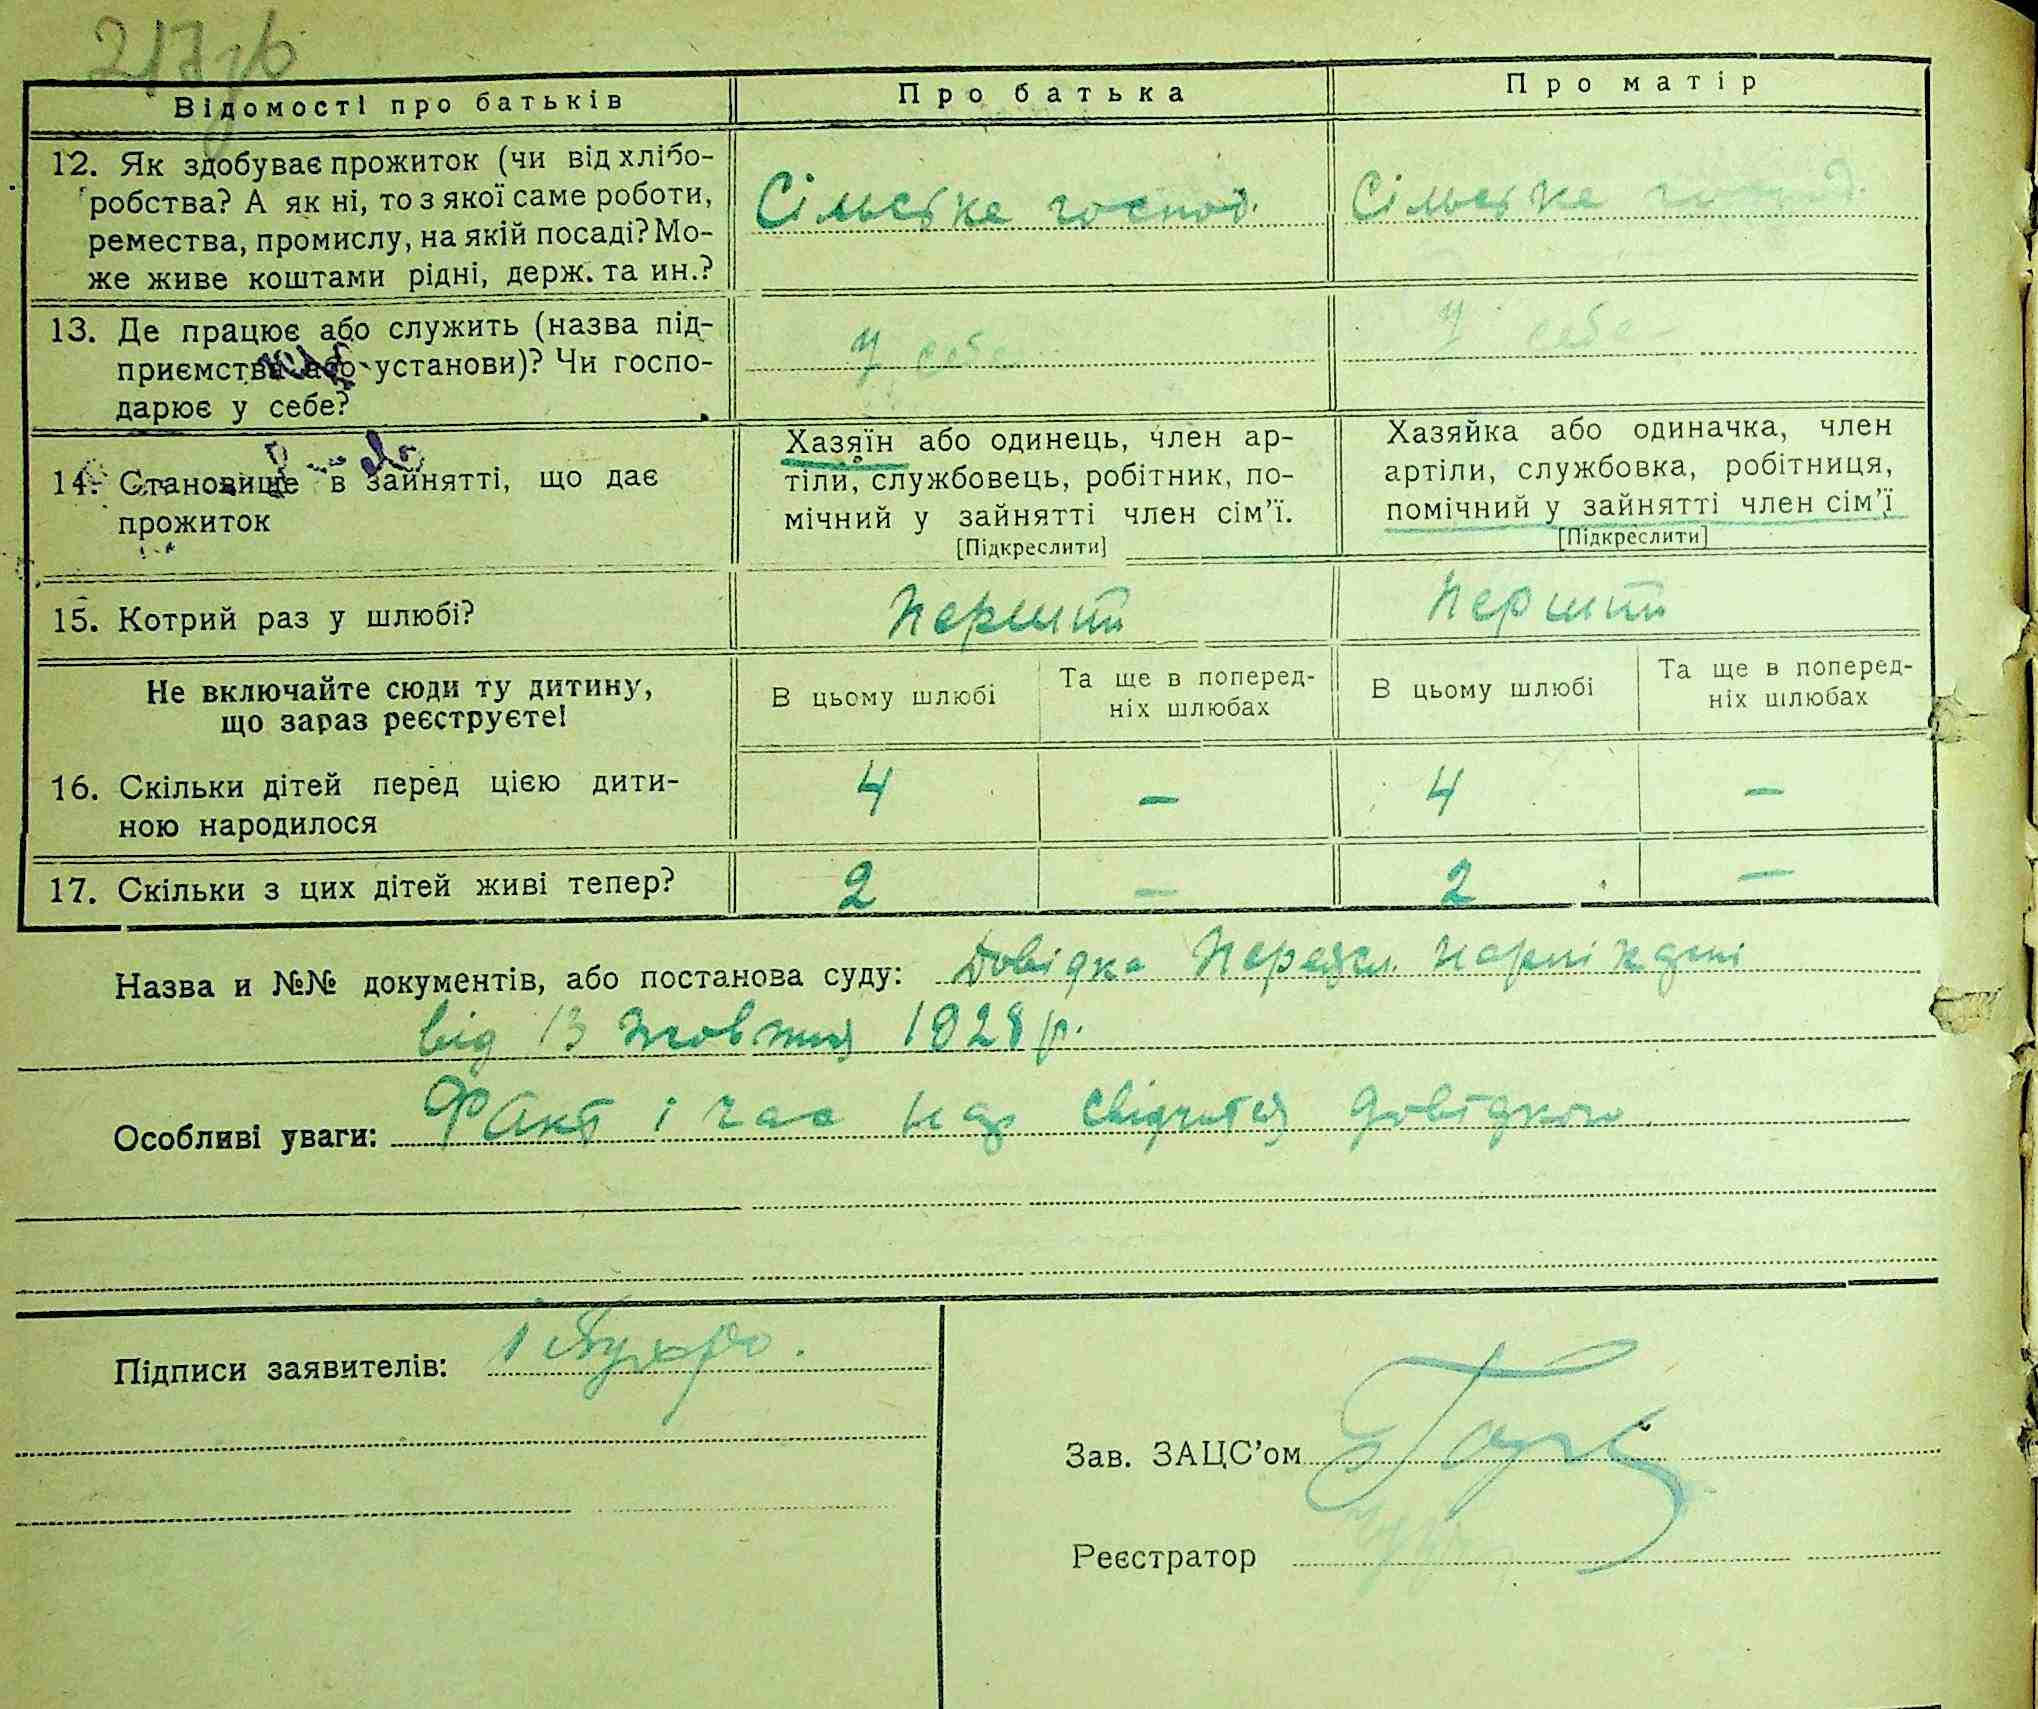 217зв
Відомості про батьків
Про батька
Про матір
12. Як здобуває прожиток (чи від хлібо-
робства? А як ні, то з якої саме роботи,
ремества, промислу, на якій посаді? Мо-
же живе коштами рідні, держ. та ин.?
Сільське господ.
Сільське господ.
13. Де працює або служить (назва під-
приємства або установи)? Чи госпо-
дарює у себе?
У себе
У себе
14. Становище в зайнятті, що дає
прожиток
Хазяїн або одинець, член ар-
тіли, службовець, робітник, по-
мічний у зайнятті член сім’ї.
[Підкреслити]
Хазяйка або одиначка, член
артіли, службовка, робітниця,
помічний у зайнятті член сім’ї
[Підкреслити]
15. Котрий раз у шлюбі?
Перший
Перший
Не включайте сюди ту дитину,
що зараз реєструєте!
В цьому шлюбі
Та ще в поперед-
ніх шлюбах
В цьому шлюбі
Та ще в поперед-
ніх шлюбах
16. Скільки дітей перед цією дити-
ною народилося
4
—
4
—
17. Скільки з цих дітей живі тепер?
2
—
2
—
Назва и №№ документів, або постанова суду: Довідка
від 13 жовтня 1928 р.
Особливі уваги: Факт і час свідчится довідкою
Підписи заявителів:
Зав. ЗАЦС’ом
Реєстратор